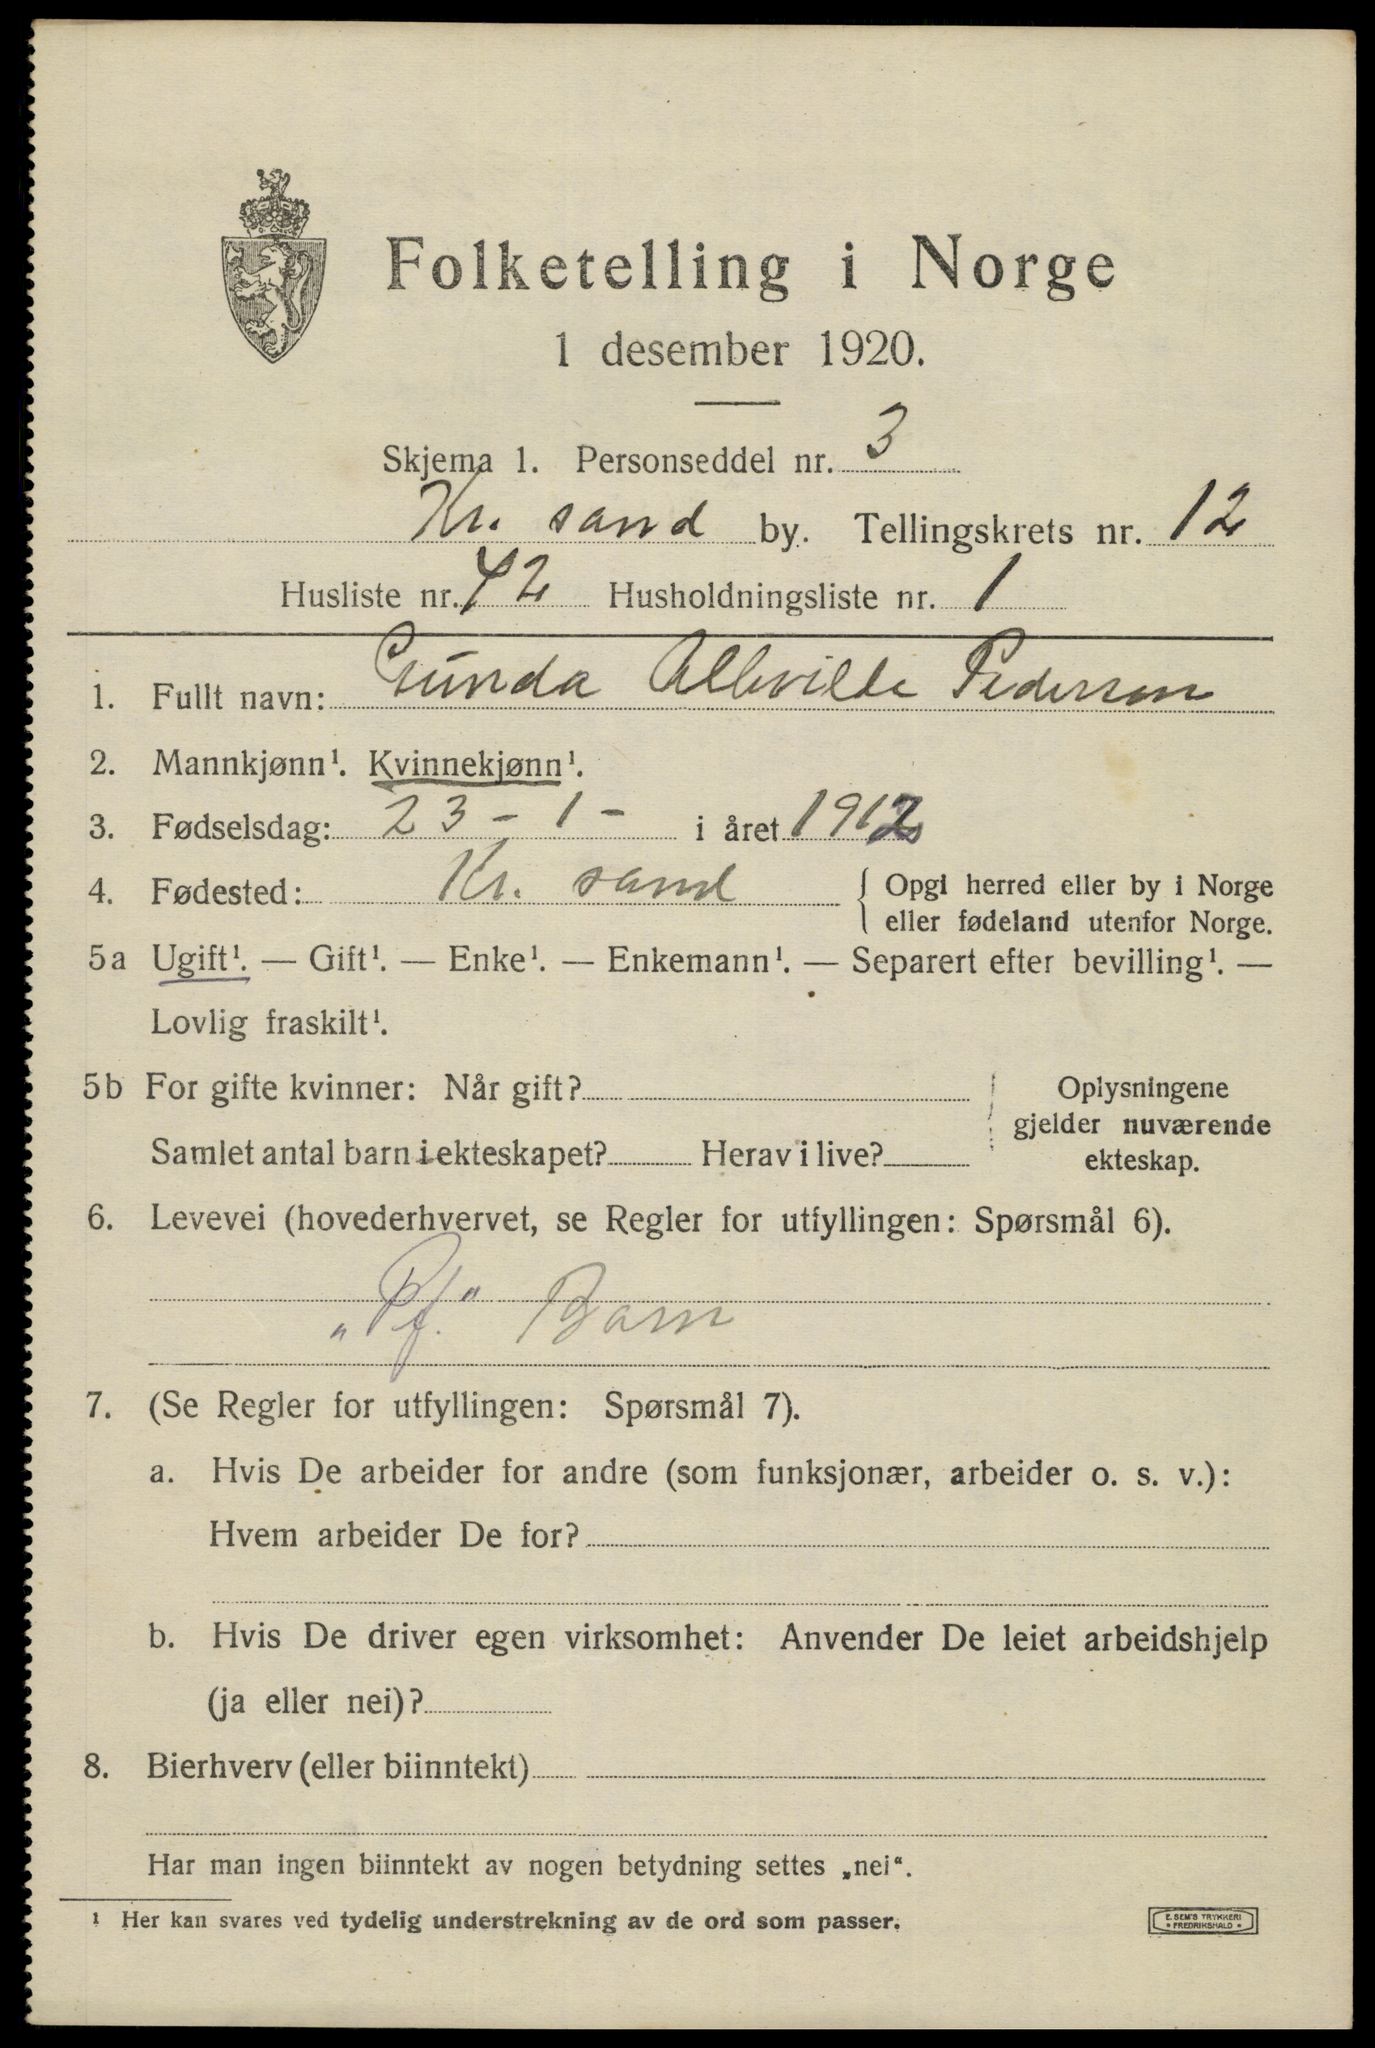 Folketelling i Norge
1 desember 1920.
Skjema 1. Personseddel nr. 3
Kr. sand by. Tellingskrets nr. 12
Husliste nr. 42 Husholdningsliste nr. 1
1. Fullt navn: Gunda Alhvilde Pedersen
2. Mannkjønn¹. Kvinnekjønn¹.
3. Fødselsdag: 23 - 1 - i året 1912
4. Fødested: Kr. sand { Opgi herred eller by i Norge
eller fødeland utenfor Norge.
5a Ugift¹. — Gift¹. — Enke¹. — Enkemann¹. — Separert efter bevilling¹. —
Lovlig fraskilt¹.
5b For gifte kvinner: Når gift? Oplysningene
gjelder nuværende
Samlet antal barn i ekteskapet? Herav i live? ekteskap.
6. Levevei (hovederhvervet, se Regler for utfyllingen: Spørsmål 6).
„Pf." Barn
7. (Se Regler for utfyllingen: Spørsmål 7).
a. Hvis De arbeider for andre (som funksjonær, arbeider o. s. v.):
Hvem arbeider De for?
b. Hvis De driver egen virksomhet: Anvender De leiet arbeidshjelp
(ja eller nei)?
8. Bierhverv (eller biinntekt)
Har man ingen biinntekt av nogen betydning settes „nei“.
¹ Her kan svares ved tydelig understrekning av de ord som passer.
E. SEM'S TRYKKERI
• FREDRIKSHALD •